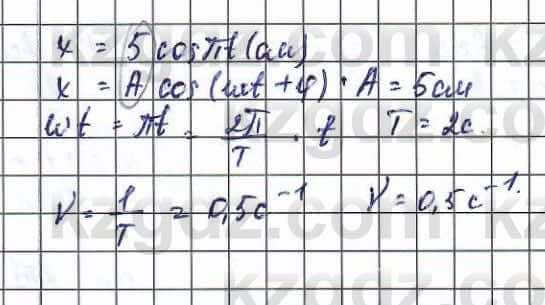 x = 5 cos πt (см)
x = A cos (ωt + φ) · A = 5 см
ωt = πt = 2π/T · t T = 2 с.
ν = 1/T = 0,5 с⁻¹ ν = 0,5 с⁻¹.
kzgdz.com